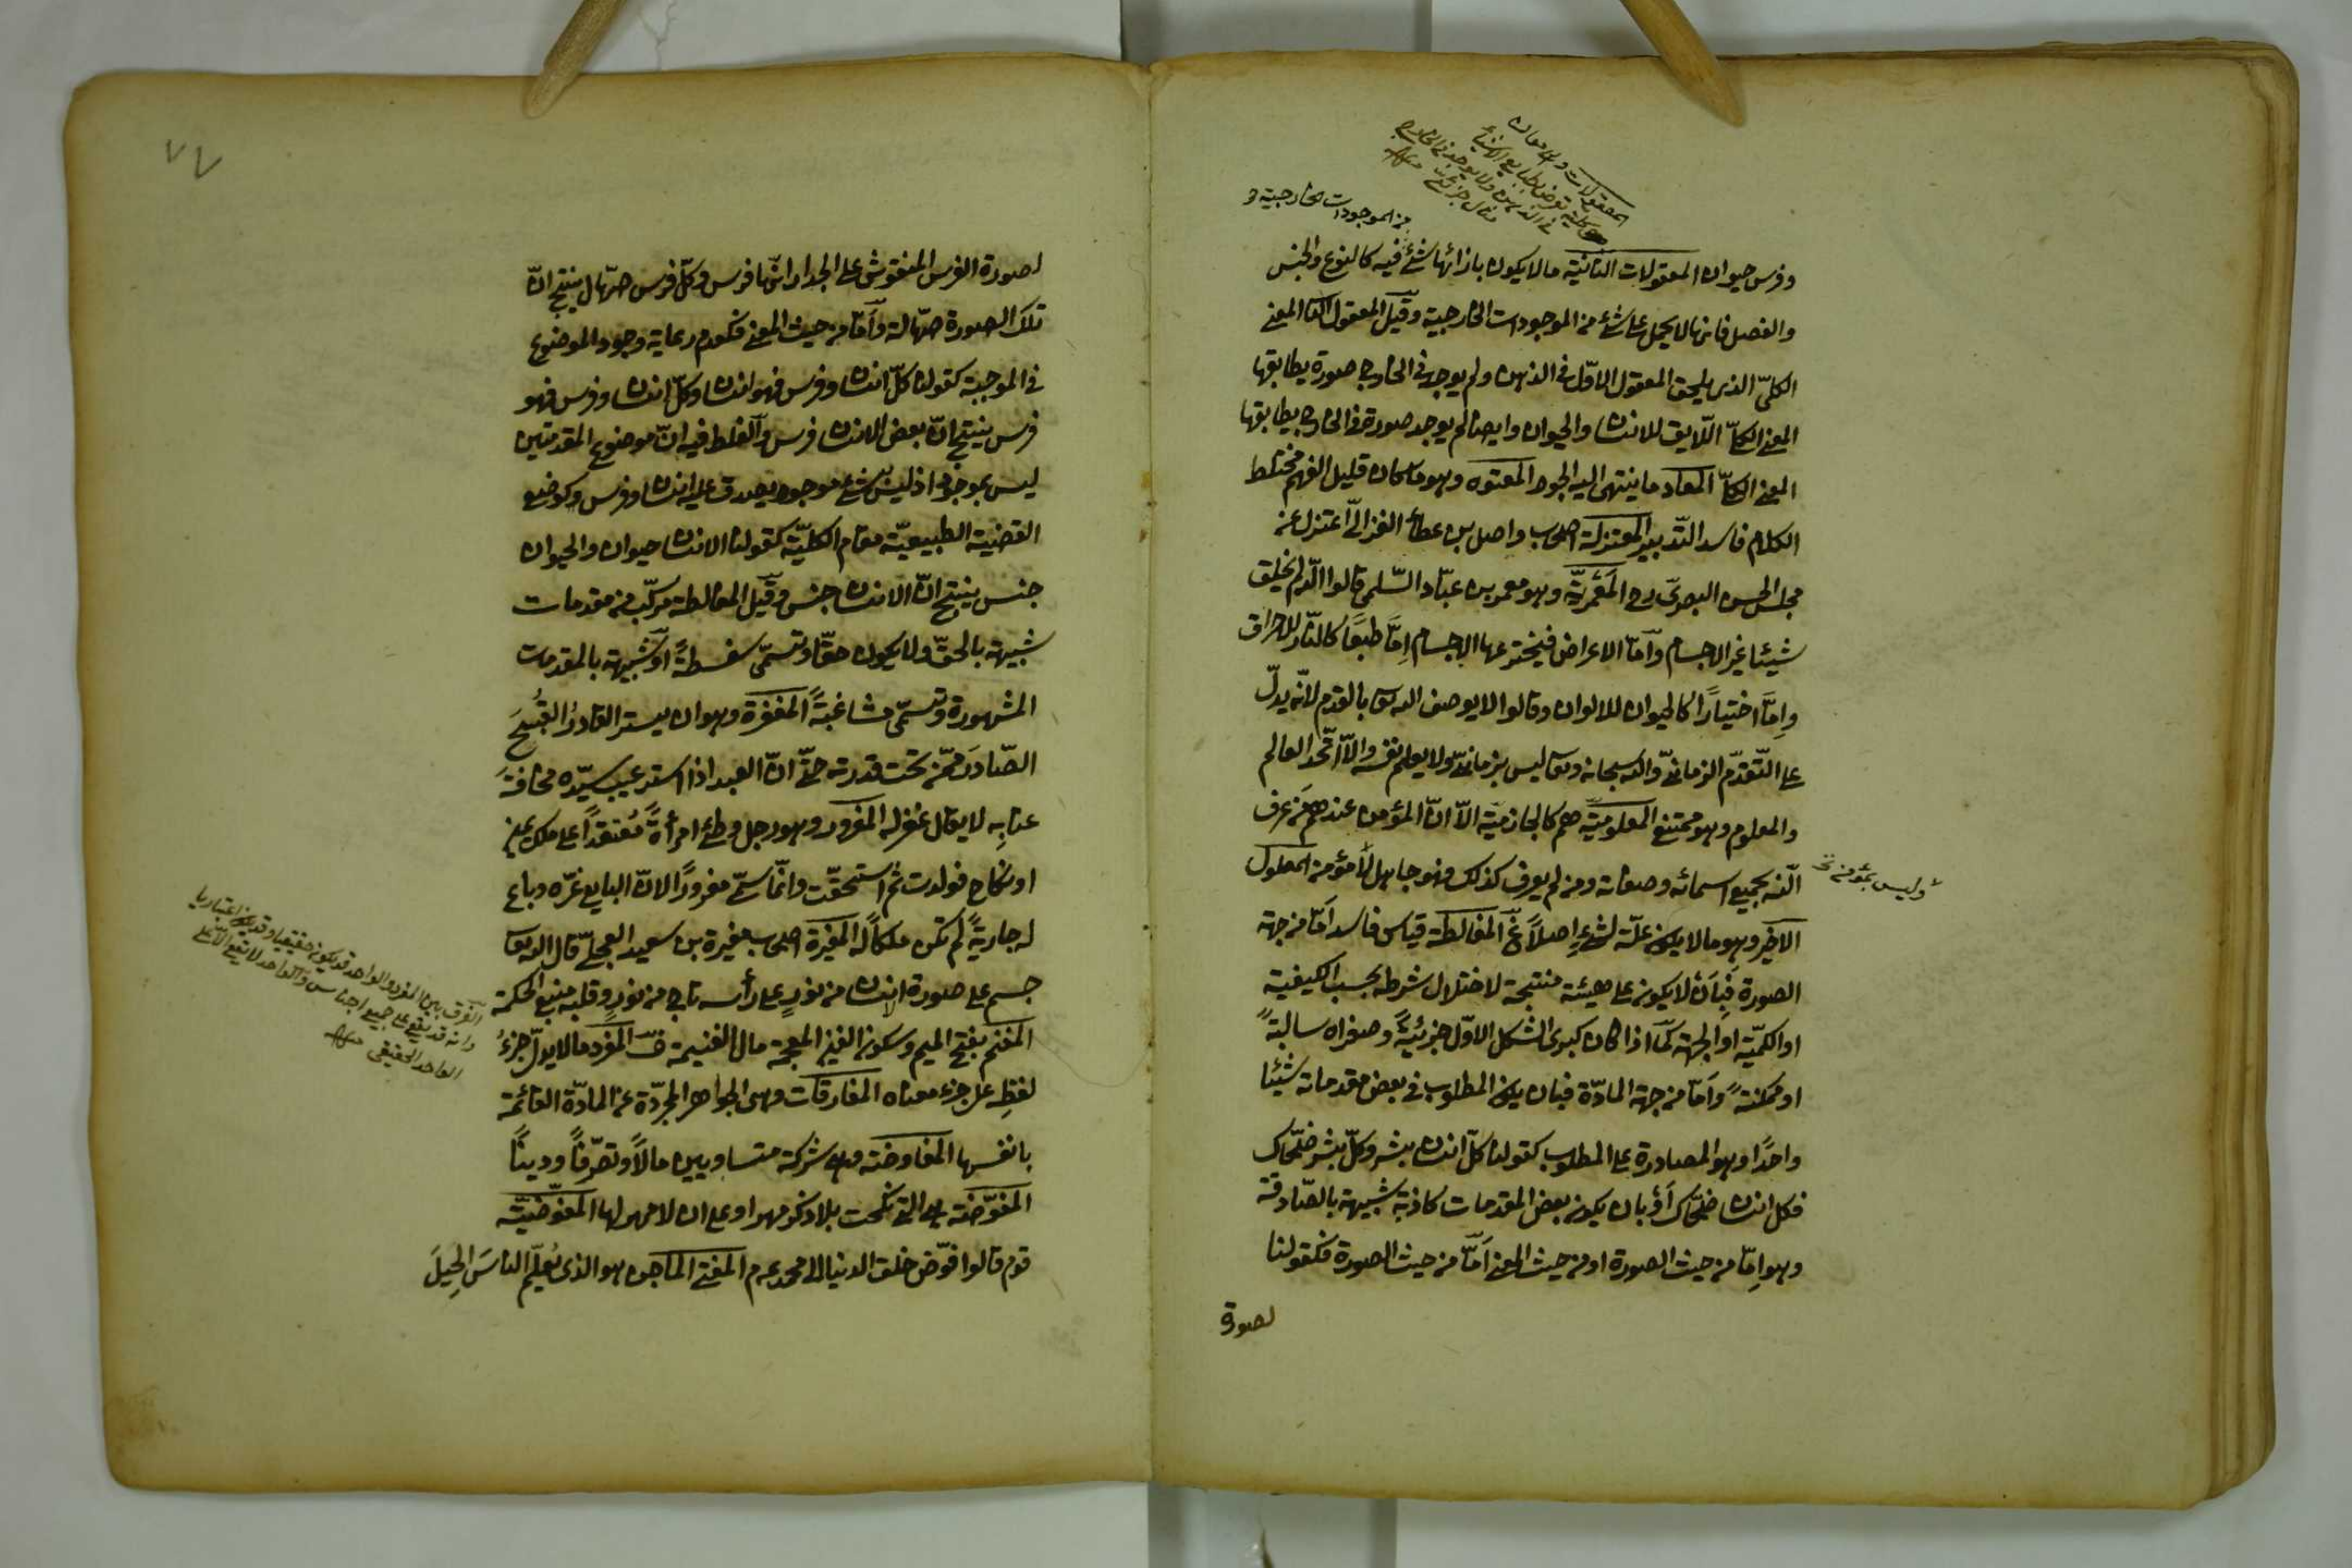 المعقولات وهى معان
كلية تعرض لطبايع الاشياء
فى الذهن ولا يوجد فى الخارج
مثال جزئى منه
من الموجودات الخارجية و
وفرس حيوان المعقولات الثانية مالا يكون بازائها شئ فيه كالنوع والجنس
والفصل فانها لا يحمل على شئ من الموجودات الخارجية وقيل المعقول الثانى المعنى
الكلىّ الذى يلحق المعقول الاوّل فى الذهن ولم يوجد فى الخارج صورة يطابقها
المعنى الكلىّ اللّايق للانسان والحيوان وايضا لم يوجد صورة فى الخارج يطابقها
المعنى الكلىّ المعاد ما ينتهى اليه الجود المعتوه وهو ما كان قليل الفهم مختلط
الكلام فاسد التّدبير المعتزلة اصحاب واصل بن عطاء الغزالىّ اعتزل عن
مجلس الحسن البصرى رح المَعْمَريّة وهو معمر بن عبّاد السّلمى قالوا اللّه لم يخلق
شيئا غير الاجسام وامّا الاعراض فيخترعها الاجسام اِمّا طبعًا كالنّار للاحراق
وامّا اختيارًا كالحيوان للالوان وقالوا لا يوصف اللّه تعا بالقدم لانّه يدلّ
على التّقدّم الزمانىّ واللّه سبحانه وتعا ليس بزمانىّ ولا يعلم نفسه والّا اتّحد العالم
والمعلوم وهو ممتنع المعلوميّة هم كالجازميّة الّا انّ المؤمن عندهم مَن عرف
اللّه بجميع اسمائه وصفاته ومن لم يعرف كذلك فهو جاهل لا مؤمن المعلول
وليس بمؤمن نخ
الاخير وهو مالا يكون علّة لشئٍ اصلًا غ المغالطة قياس فاسد امّا من جهة
الصورة فبِاَنْ لا يكون على هيئة منتجة لاختلال شرطه بحسب الكيفية
او الكمّيّة او الجهة كما اذا كان كبرى الشكل الاوّل جزئيةً وصغراه سالبةً
او ممكنةً وَامّا من جهة المادّة فبان يكون المطلوب فى بعض مقدماته شيئا
واحدًا وهو المصادرة على المطلوب كقولنا كلّ انسان بشر وكلّ بشر ضحّاك
فكل انسان ضحّاك اَوْ بان يكون بعض المقدمات كاذبة شبيهة بالصّادقة
وهو اِمّا من حيث الصورة او من حيث المعنى اَمّا من حيث الصورة فكقولنا
لصورة
٧٧
لصورة الفرس المنقوش على الجدار انّها فرس وكلّ فرس صهّال ينتج انّ
تلك الصورة صهّالة وَامّا من حيث المعنى فكعدم رعاية وجود الموضوع
فى الموجبة كقولنا كلّ انسان وفرس فهو انسان وكلّ انسان وفرس فهو
فرس ينتج انّ بعض الانسان فرس والغلط فيه انّ موضوع المقدمتين
ليس بموجود اذ ليس شئ موجود يصدق عليه انسان وفرس وكوضع
القضية الطبيعيّة مقام الكليّة كقولنا الانسان حيوان والحيوان
جنس ينتج انّ الانسان جنس وقيل المغالطة مركّب من مقدمات
شبيهة بالحقّ ولا يكون حقّا وتسمّى سفسطةً او شبيهة بالمقدمات
المشهورة وتسمّى مشاغبةً المغفرة وهو ان يستر القادرُ القبيحَ
الصّادرَ ممّن تحت قدرته حتّى انّ العبد اذا ستر عيب سيّده مخافةَ
عتابِه لا يقال غفر له المغرور وهو رجل وطئ امرأةً مُعتقدًا على ملك يمين
او نكاح فولدت ثم استحقّت وانّما سمّى مغرورًا لانّ البايع غرّه وباع
له جاريةً لم تكن ملكًا له المغيرة اصحاب مغيرة بن سعيد العجلىّ قال اللّه تعا
جسم على صورة انسان من نورٍ على رأسه تاج من نورٍ وقلبه منبع الحكمة
المغنم بفتح الميم وسكون الغين المعجمة مال الغنيمة فــ المفرد مالا يدلّ جزءُ
لفظِه على جزء معناه المفارقات وهى الجواهر المجرّدة عن المادّة القائمة
بانفسها المفاوضة وهى شركة متساويين مالًا وتصرّفًا ودينًا
المفوّضة هى التى نكحت بلا ذكر مهر او على ان لا مهر لها المفوّضيّة
قوم قالوا فوّض خلق الدنيا الى محمد عم م المفتى الماجن هو الذى يُعلّم الناسَ الحِيلَ
الفرق بين المفرد والواحد قد يكون حقيقيا وقد يكون اعتباريا
وانه قد يقع على جميع اجناس والواحد لا يقع الّا على
الواحد الحقيقى منه